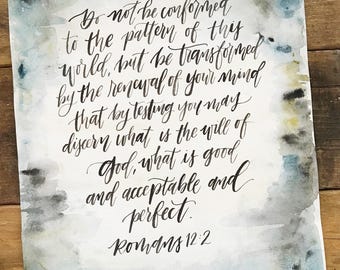 Do not be conformed
to the pattern of thy
world, but be transformed
by the renewal of your mind
that by testing you may
discern what is the will of
God, what is good
and acceptable and
perfect.
Romans 12:2